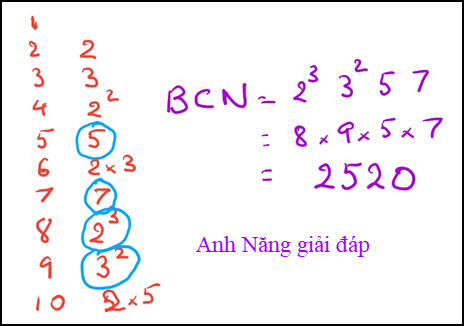 1
2 2
3 3
4 2²
5 5
6 2×3
7 7
8 2³
9 3²
10 2×5
BCN = 2³ 3² 5 7
= 8×9×5×7
= 2520
Anh Năng giải đáp